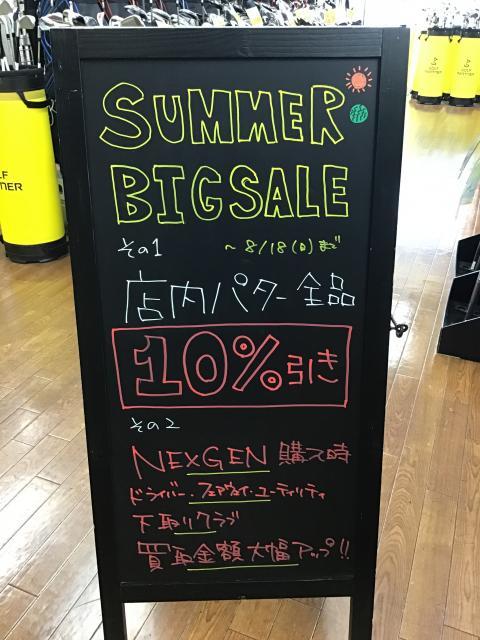 SUMMER
BIG SALE
その1 ～8/18(日)まで
店内パター全品
10%引き
その2
NEXGEN 購入時
ドライバー・フェアウェイ・ユーティリティ
下取りクラブ
買取金額大幅アップ!!
GOLF
PARTNER